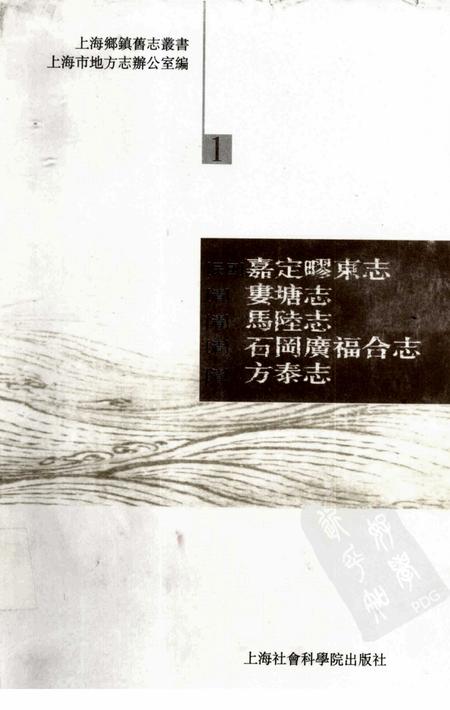 上海鄉鎮舊志叢書
上海市地方志辦公室編
1
嘉定疁東志
婁塘志
馬陸志
石岡廣福合志
方泰志
上海社會科學院出版社
PDG